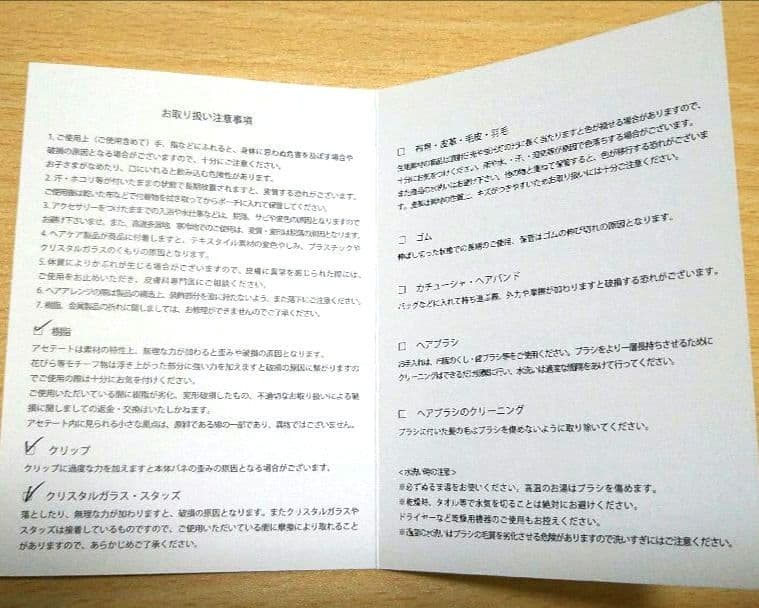 お取り扱い注意事項
1. ご使用上（ご使用含めて）手、指などにふれると、身体に思わぬ危害を及ぼす場合や
破損の原因となる場合がございますので、十分にご注意ください。
お子さまがなめたり、口にいれると飲み込む危険性があります。
2. 汗・ホコリ等が付いたままの状態で長期放置されますと、変質する恐れがございます。
ご使用後は乾いた布などで付着物を拭き取ってからポーチに入れて保管してください。
3. アクセサリーをつけたままでの入浴や水仕事などは、脱落、サビや変色の原因となりますので
お避け下さいませ。また、高温多湿地、寒冷地でのご使用は、変質・変形は脱落の原因となります。
4. ヘアケア製品が商品に付着しますと、テキスタイル素材の変色やしみ、プラスチックや
クリスタルガラスのくもりの原因となります。
5. 体質によりかぶれが生じる場合がございますので、皮膚に異常を感じられた際には、
ご使用をお止めいただき、皮膚科専門医にご相談ください。
6. ヘアアレンジの際は製品の構造上、装飾部分を逆に持たないよう、また落下にご注意ください。
7. 樹脂、金属製品の折れに関しましては、お修理ができませんのでご了承ください。
☑ 樹脂
アセテートは素材の特性上、無理な力が加わると歪みや破損の原因となります。
花びら等モチーフ物は浮き上がった部分に強い力を加えますと破損の原因に繋がりますの
でご使用の際は十分にお気を付けください。
ご使用いただいている間に樹脂が劣化、変形破損したもの、不適切なお取り扱いによる破
損に関しましての返金・交換はいたしかねます。
アセテート内に見られる小さな黒点は、原料である綿の一部であり、異物ではございません。
☑ クリップ
クリップに過度な力を加えますと本体バネの歪みの原因となる場合がございます。
☑ クリスタルガラス・スタッズ
落としたり、無理な力が加わりますと、破損の原因となります。またクリスタルガラスや
スタッズは接着しているものですので、ご使用いただいている間に摩擦により取れること
がありますので、あらかじめご了承ください。
□ 布帛・皮革・毛皮・羽毛
生地素材の製品は直射日光や蛍光灯の灯りに長く当たりますと色が褪せる場合がありますので、
十分にお気をつけください。雨や水・汗・摩擦等が原因で色落ちする場合がございます。
また商品の水洗いはお避け下さい。他の物と重ねて保管すると、色が移行する恐れがございま
す。皮革は素材の性質上、キズがつきやすいためお取り扱いには十分ご注意ください。
□ ゴム
伸ばしきった状態での長期のご使用、保管はゴムの伸び切れの原因となります。
□ カチューシャ・ヘアバンド
バッグなどに入れて持ち運ぶ際、外力や摩擦が加わりますと破損する恐れがございます。
□ ヘアブラシ
お手入れは、市販のくし・歯ブラシ等をご使用ください。ブラシをより一層長持ちさせるために
クリーニングはできるだけ頻繁に行い、水洗いは適度な間隔をあけて行ってください。
□ ヘアブラシのクリーニング
ブラシに付いた髪の毛はブラシを傷めないように取り除いてください。
<水洗い時の注意>
※必ずぬるま湯をお使いください。高温のお湯はブラシを傷めます。
※乾燥時、タオル等で水気を切ることは絶対にお避けください。
ドライヤーなど乾燥用機器のご使用もお控えください。
※過度の水洗いはブラシの毛質を劣化させる危険がありますので洗いすぎにはご注意ください。